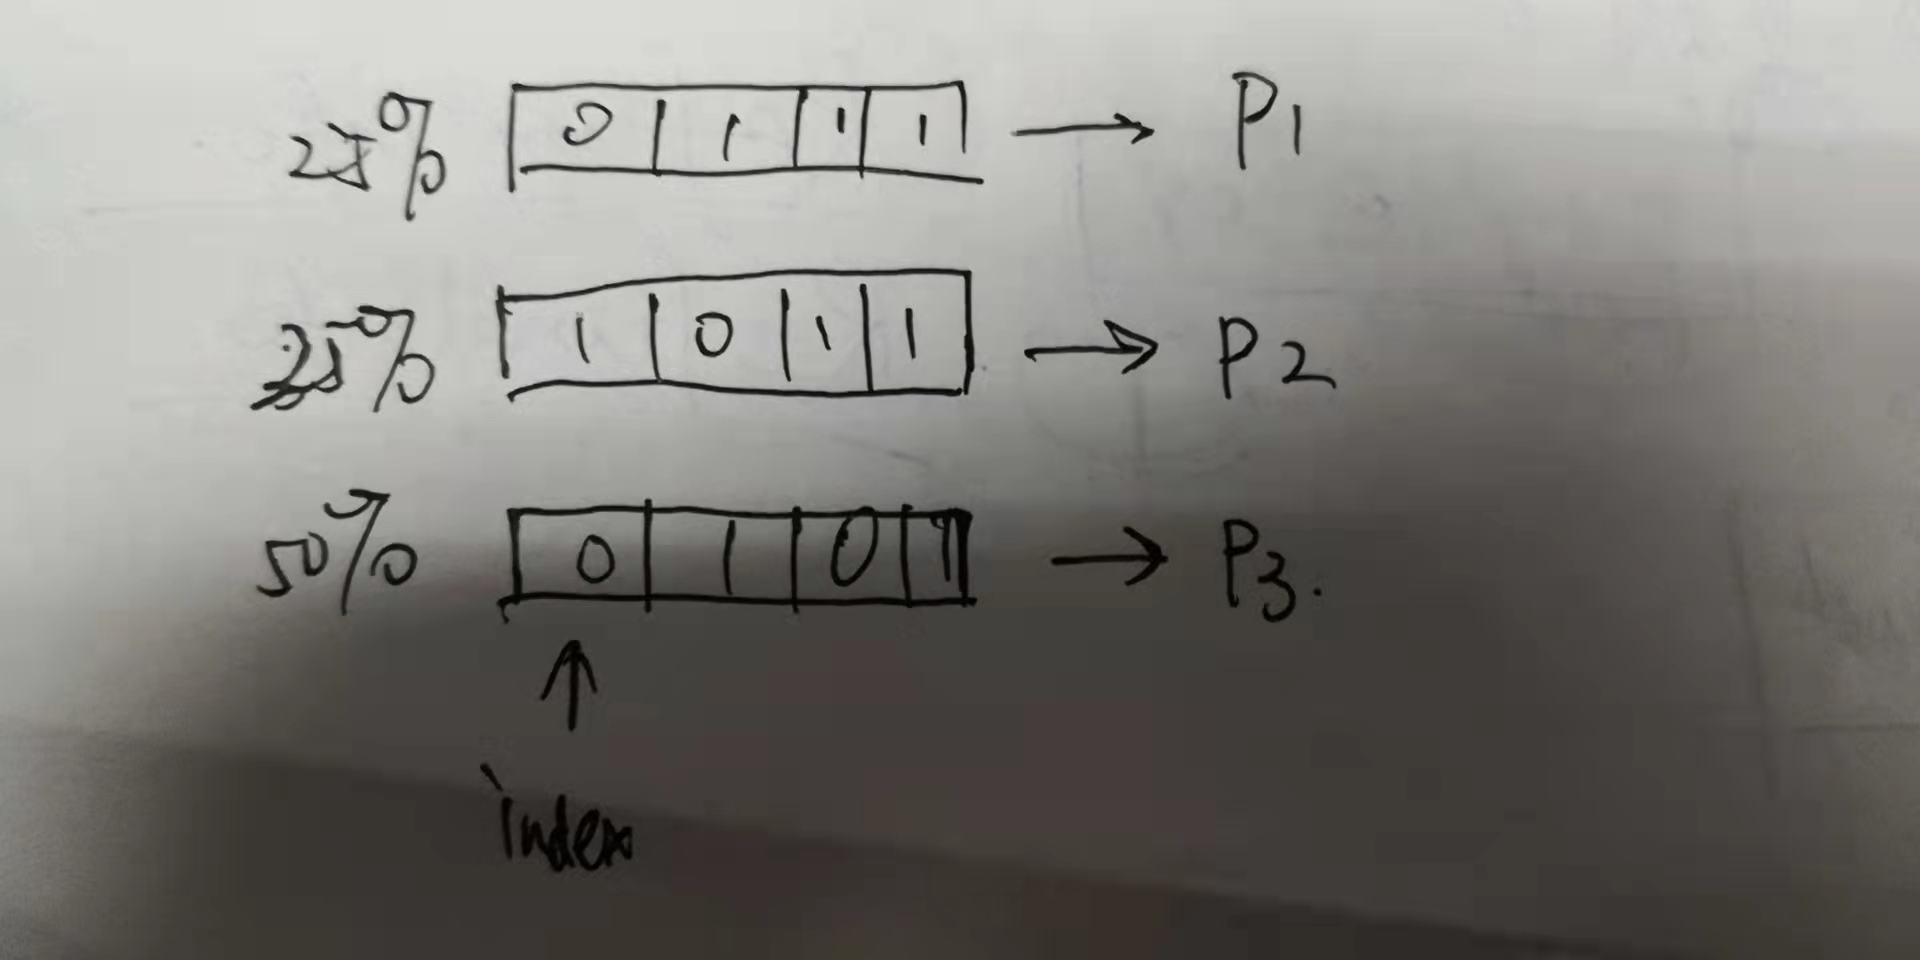 25% 0 1 1 1 → P1
25% 1 0 1 1 → P2
50% 0 1 0 1 → P3.
↑
index